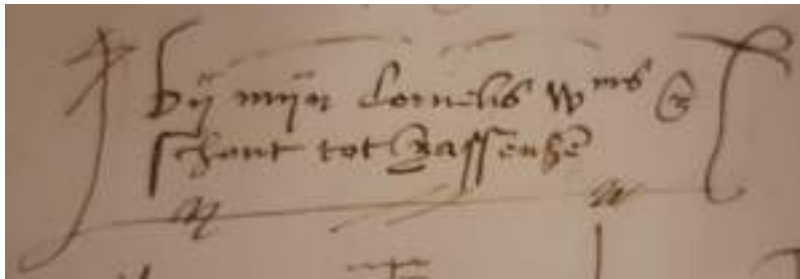 bij mijn Cornelis Wms
schout tot Sassenhē